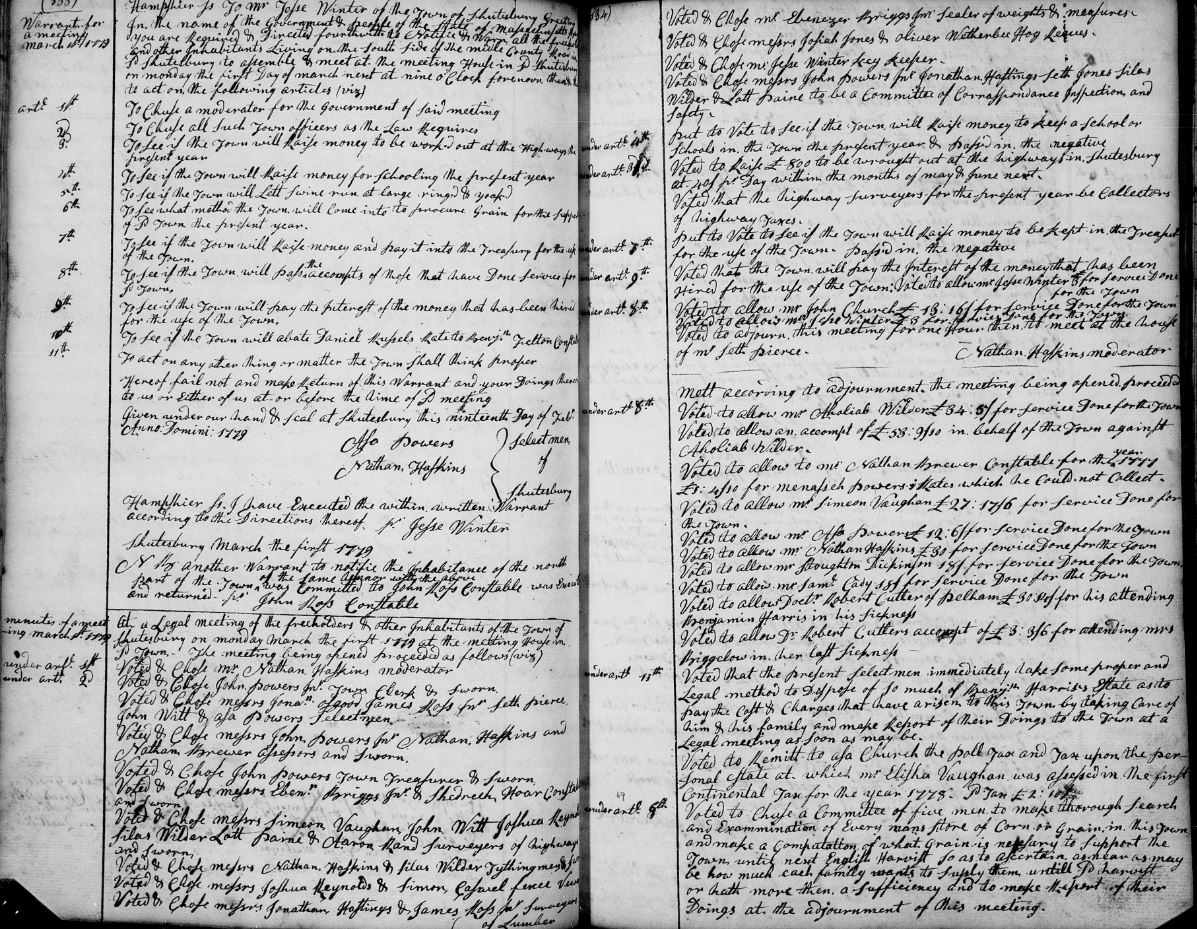 (333)
Warrant for
a meeting
March 1st 1779
Hampshier Ss To Mr Jesse Winter of the Town of Shutesbury Greeting
In the name of the Government & people of the State of Massachusetts
you are Required & Directed fourthwith to Notifie & Warn all the
and other Inhabitants Living on the South Side of the midle County Road in
sd Shutesbury to assemble & meet at the meeting House in sd Shutesbury
on monday the first Day of march next at nine o'Clock forenoon then
to act on the following articles (viz)
artc 1st To Chuse a moderator for the Government of said meeting
2d To Chuse all Such Town officers as the Law Requires
3 To see if the Town will Raise money to be workd out at the Highways the
present year
4th To see if the Town will Raise money for Schooling the present year
5th To see if the Town will Lett Swine run at large ringd & yoakd
6th To see what method the Town will Come into to procure Grain for the
of sd Town the present year.
7th To see if the Town will Raise money and pay it into the Treasury for the use
of the Town.
8th To see if the Town will pass the accompts of those that have Done Service for
sd Town.
9th To see if the Town will pay the Interest of the money that has been hird
for the use of the Town.
10th To see if the Town will abate Daniel Russels Rate to Benjn
11th To act on any other thing or matter the Town Shall think proper
Hereof fail not and make Return of this Warrant and your Doings
to us or Either of us at or before the time of sd meeting
Given under our hand & seal at Shutesbury this ninteenth Day of Feb
Anno Domini: 1779
Asa Powers
Nathan Haskins
Select men
of
Shutesbury
Hampshier Ss. I have Executed the within written Warrant
according to the Directions thereof. pr Jesse Winter
Shutesbury March the first 1779
NB another Warrant to notifie the Inhabitance of the north
part of the Town of the same tennor with the above
and returned pr was Committed to John Ross Constable was
John Ross Constable
minutes of a meet
ing march 1st 1779
At a Legal meeting of the freeholders & other Inhabitants of the Town of
Shutesbury on monday March the first 1779 at the meeting House in
sd Town. The meeting being opened proceeded as follows (viz)
under artc 1st Voted & Chose mr Nathan Haskins moderator
under artc 2d Voted & Chose John Powers Jnr Town Clerk & Sworn
Voted & Chose messrs Jonan Osgood James Ross Jnr Seth Pierce
John Witt & asa Powers Selectmen
Voted & Chose messrs John Powers Jnr Nathan Haskins and
Nathan Brewer assessors and Sworn.
Voted & Chose John Powers Town Treasurer & Sworn
Voted & Chose messrs Ebenr Briggs Jnr & Shedrech Hoar
and Sworn
Voted & Chose messrs Simeon Vaughan John Witt Joshua
Silas Wilder Lott Paine & Aaron Rand Surveyors of highways
and Sworn.
Voted & Chose messrs Nathan Haskins & Silas Wilder Tythingmen
Voted & Chose messrs Joshua Reynolds & Simon fence
Voted & Chose messrs Jonathan Hastings & James Ross Jnr Surveyors
of Lumber
334)
Voted & Chose mr Ebenezer Briggs Jnr Sealer of weights & measures.
Voted & Chose messrs Josiah Jones & Oliver Witherbee Hog Reaves.
Voted & Chose mr Jesse Winter key keeper.
Voted & Chose messrs John Powers Jnr Jonathan Hastings Seth Jones Silas
Wilder & Lott Paine to be a Committee of Corraspondance Inspection and
Safety.
under artc 4th put to Vote to see if the Town will Raise money to keep a school or
schools in the Town the present year & Passd in the negative
under artc 3d Voted to Raise £ 800 to be wrought out at the highways in Shutesbury
at 40/ pr Day within the months of may & June next.
Voted that the highway surveyers for the present year be Collectors
of highway Taxes.
under artc 7th put to Vote to see if the Town will Raise money to be kept in the
for the use of the Town. Passd in the negative
under artc 9th Voted that the Town will pay the Interest of the money that has been
Hired for the use of the Town; Voted to allow mr Jesse Winter 3 for Service Done
for the Town
under artc 8th Voted to allow mr John Church £ 13: 16/ for Service Done for the Town
Voted to adjourn this meeting for one Hour then to meet at the house
of mr Seth Pierce.
Nathan Haskins moderator
Mett according to adjournment the meeting being opened proceeded
under artc 8th Voted to allow mr Aholiab Wilder £ 34: 5/ for Service Done for the Town
Voted to allow an accompt of £ 53: 9/10 in behalf of the Town against
Aholiab Wilder.
Voted to allow to mr Nathan Brewer Constable for the year 1777
£ 1: 4/10 for menasseh Powers's Rates which he Could not Collect.
Voted to allow mr Simeon Vaughan £ 27: 17/6 for Service Done for
the Town.
Voted to allow mr Asa Powers £ 12: 6/ for Service Done for the Town
Voted to allow mr Nathan Haskins £ 30 for Service Done for the Town
Voted to allow mr Stoughton Dickinson 18/ for Service Done for the Town
Voted to allow mr Saml Cady 18/ for Service Done for the Town
Voted to allow Doctr Robert Cutler of Pelham £ 30: for his attending
Benjamin Harris in his Sickness
Voted to allow Dr Robert Cutlers accompt of £ 3: 3/6 for attending mrs
Briggelow in her last Sickness
under artc 11th Voted that the Present Select men immediately take some proper and
Legal method to Dispose of so much of Benjn Harris's Estate as to
pay the Cost & Charges that have arisen to this Town by taking Care of
him & his family and make Report of their Doings to the Town at a
Legal meeting as soon as may be.
Voted to Remitt to asa Church the Poll Tax and Tax upon the per-
sonal Estate at which mr Elisha Vaughan was assessed in the first
Continental Tax for the year 1778. sd Tax £ 2:
under artc 6th Voted to Chuse a Committee of five men to make thorough search
and Exammination of Every mans Store of Corn or Grain in this Town
and make a Computation of what Grain is nessary to support the
Town until next English Harvist so as to ascertain as near as may
be how much each family wants to supply them untill sd harvist
or hath more then a Sufficiency and to make Report of their
Doings at the adjournment of this meeting.